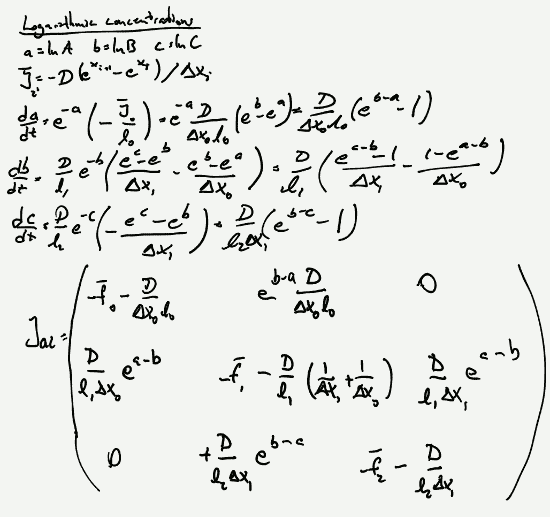 Logarithmic concentrations
a = ln A b = ln B c = ln C
J̄ᵢ = -D (e^{xᵢ₊₁} - e^{xᵢ}) / Δxᵢ
da/dt = e^{-a} (-J̄₀/l₀) = e^{-a} D/(Δx₀l₀) (e^b - e^a) = D/(Δx₀l₀) (e^{b-a} - 1)
db/dt = D/l₁ e^{-b} ((e^c - e^b)/Δx₁ - (e^b - e^a)/Δx₀) = D/l₁ ((e^{c-b} - 1)/Δx₁ - (1 - e^{a-b})/Δx₀)
dc/dt = D/l₂ e^{-c} (-(e^c - e^b)/Δx₁) = D/(l₂Δx₁) (e^{b-c} - 1)
-f̄₀ - D/(Δx₀l₀) e^{b-a} D/(Δx₀l₀) 0
Jac = D/(l₁Δx₀) e^{a-b} -f̄₁ - D/l₁ (1/Δx₁ + 1/Δx₀) D/(l₁Δx₁) e^{c-b}
0 + D/(l₂Δx₁) e^{b-c} -f̄₂ - D/(l₂Δx₁)